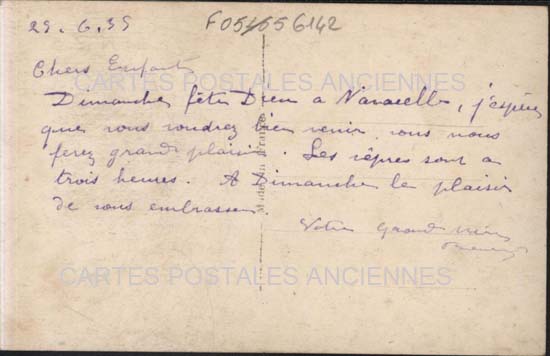 29.6.35
F054656142
Chers Enfants
CARTES POSTALES ANCIENNES
Dimanche fête Dieu a j'espère
que vous voudrez bien venir, vous nous
ferez grand plaisir. Les vêpres sont a
trois heures. A Dimanche le plaisir
de vous embrasser.
Votre Grand mère
CARTES POSTALES ANCIENNES